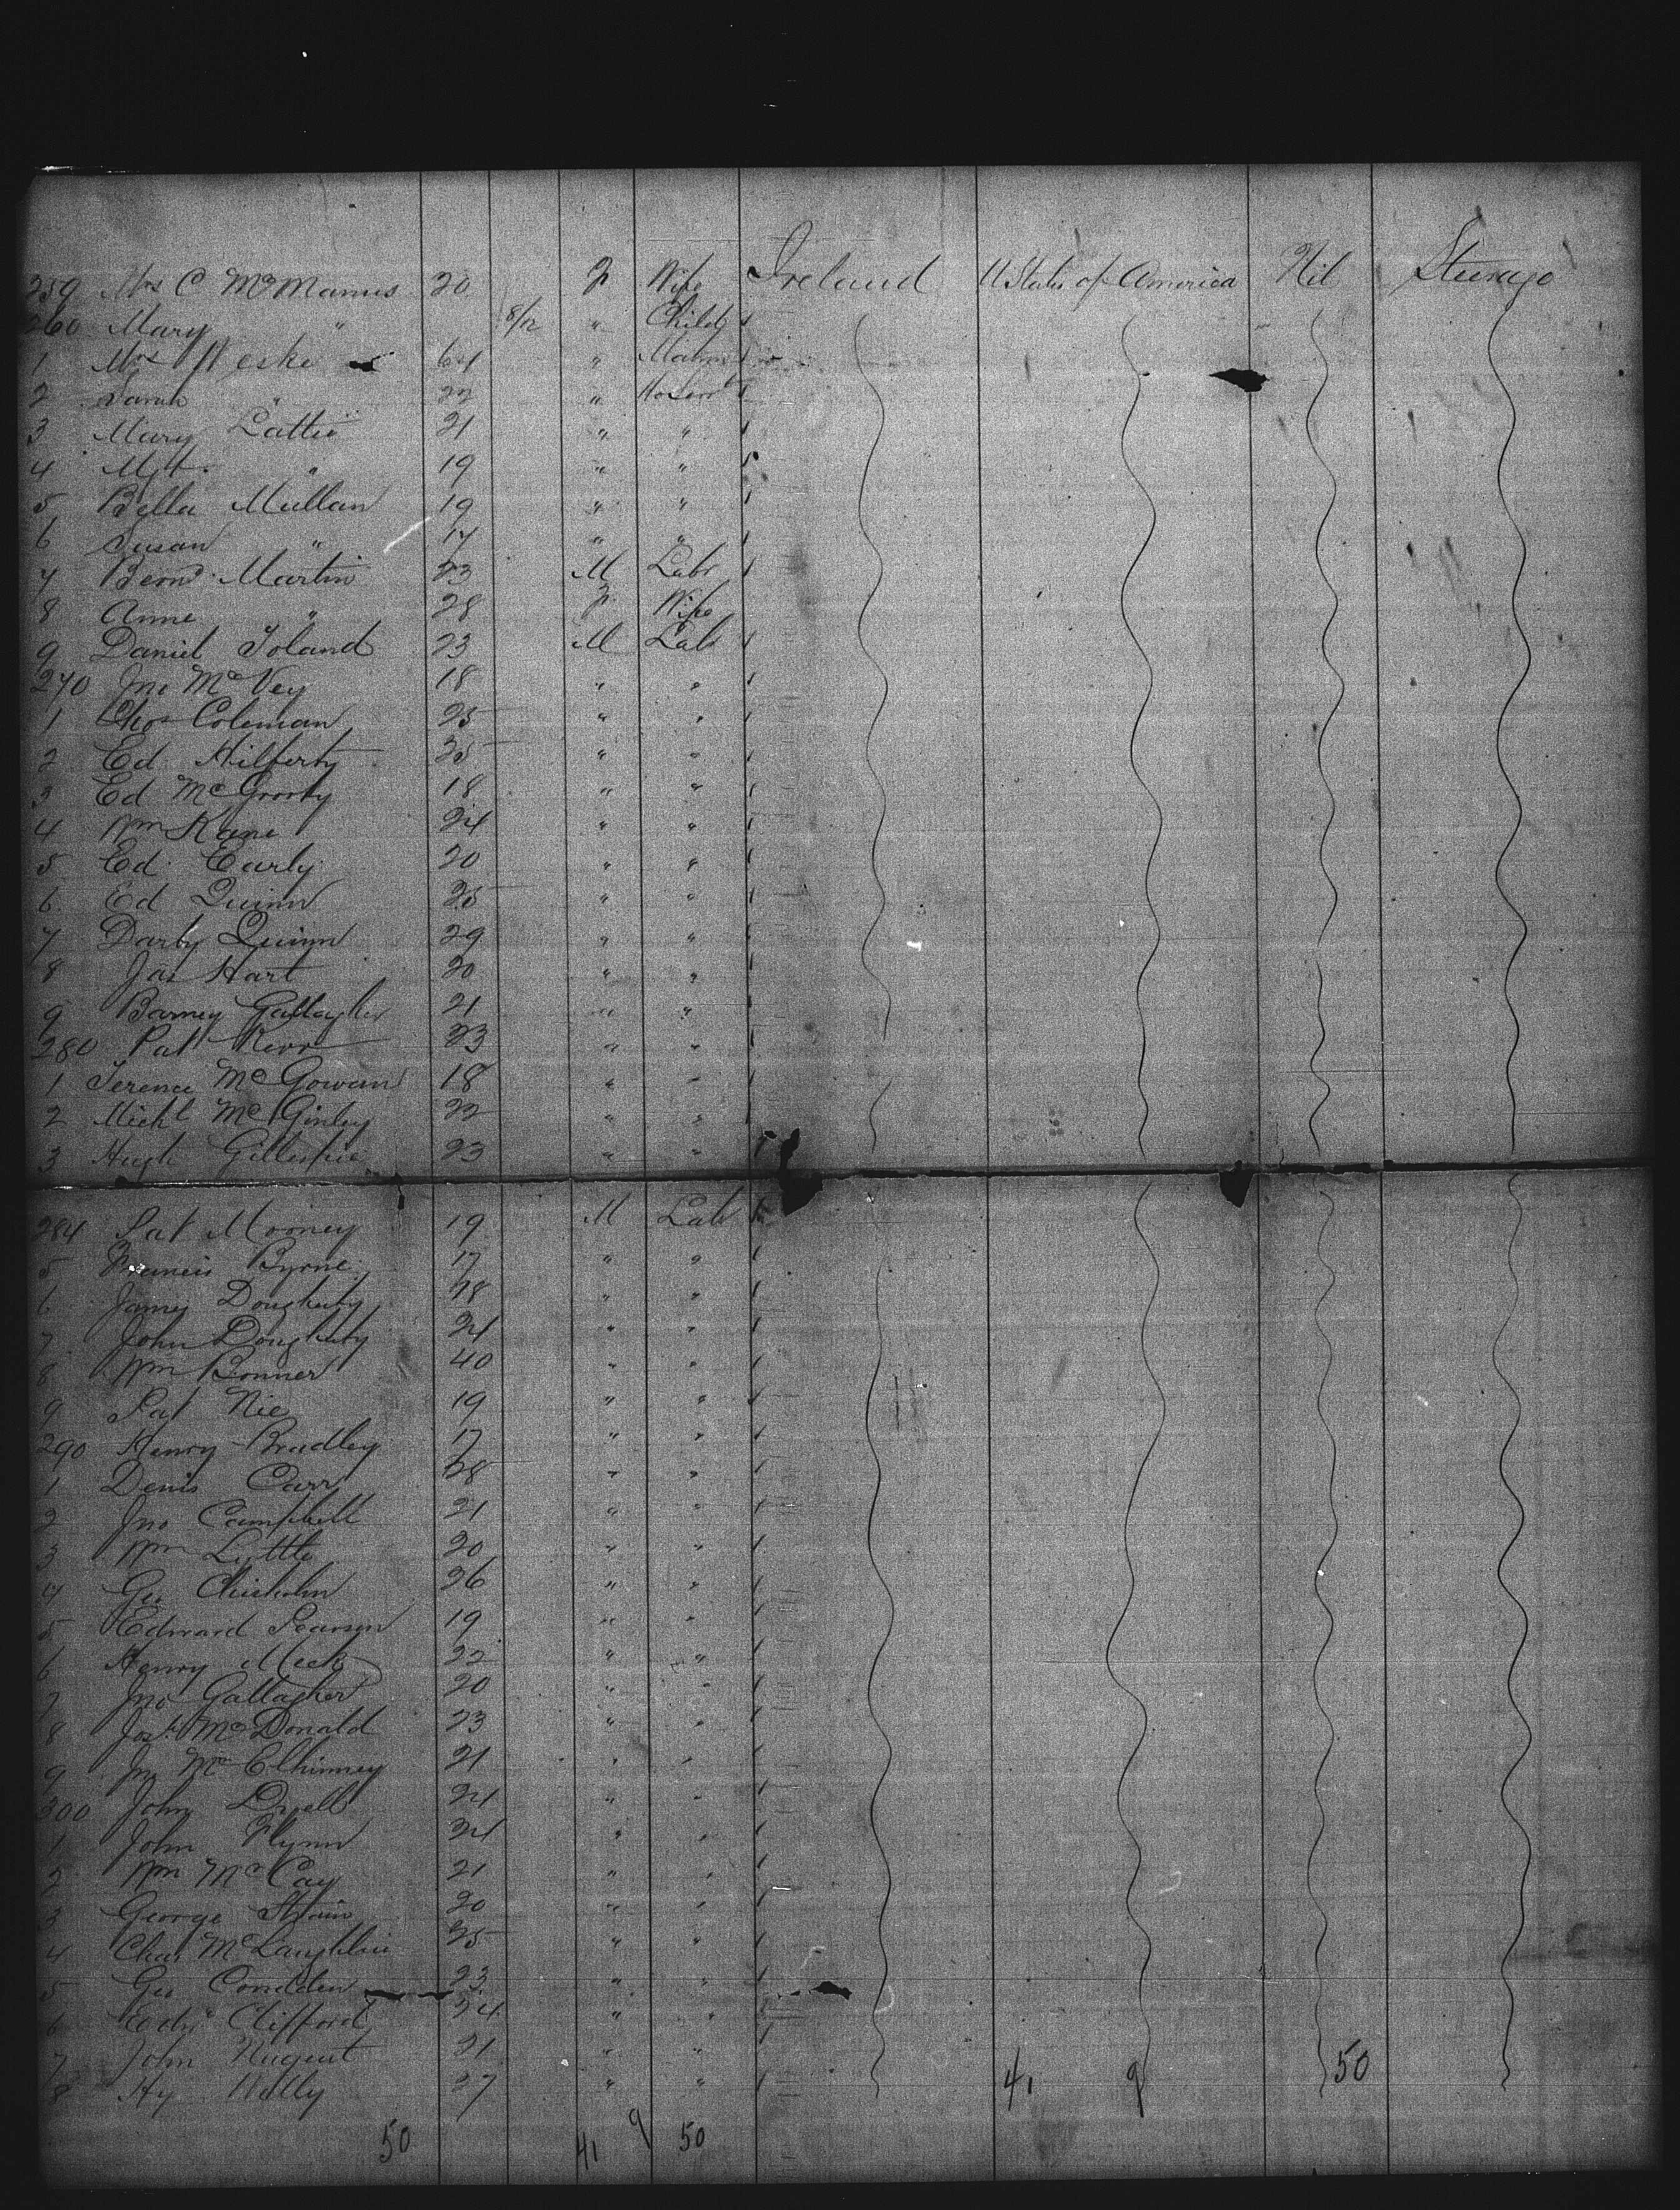 259 Mrs C McManus 20 F Wife Ireland U States of America Nil Steerage
260 Mary " 8/12 " Child
1 Mrs 64 "
2 Sarah " 22 "
3 Mary Lattie 21 " "
4 Mgt. " 19 " "
5 Bella Mullan 19 " "
6 Susan " 17 " "
7 Bernd Martin 23 M Labr
8 Anne " 28 F Wife
9 Daniel Toland 23 M Lab
270 Jno McVey 18 " "
1 Thos Coleman 25 " "
2 Ed Hilferty 25 " "
3 Ed McGroorty 18 " "
4 Wm Kane 24 " "
5 Ed. Early 20 " "
6 Ed Quinn 25 " "
7 Darby Quinn 29 " "
8 Jas Hart 20 " "
9 Barney Gallagher 21 " "
280 Pat Kerr 23 " "
1 Terence McGowan 18 " "
2 Michl McGinley 22 " "
3 Hugh Gillespie 23 " "
284 Pat Mooney 19 M Lab
5 Francis Byrne 17 " "
6 James Dougherty 18 " "
7 John Dougherty 21 " "
8 Wm Bonner 40 " "
9 Pat Nie 19 " "
290 Henry Bradley 17 " "
1 Denis Carr 28 " "
2 Jno Campbell 21 " "
3 Wm Lyttle 20 " "
4 Geo Chisholm 26 " "
5 Edward Pearson 19 " "
6 Henry Meek 22 " "
7 Jno Gallagher 20 " "
8 Josh McDonald 23 " "
9 Jno McElhinney 21 " "
300 John 24 " "
1 John Flynn 24 " "
2 Wm McCay 21 " "
3 George Strain 20 " "
4 Chas McLaughlin 25 " "
5 Geo 23 " "
6 Clifford 24 " "
7 John Nugent 21 " "
8 Hy 27 " "
41 9 50
50 41 9 50